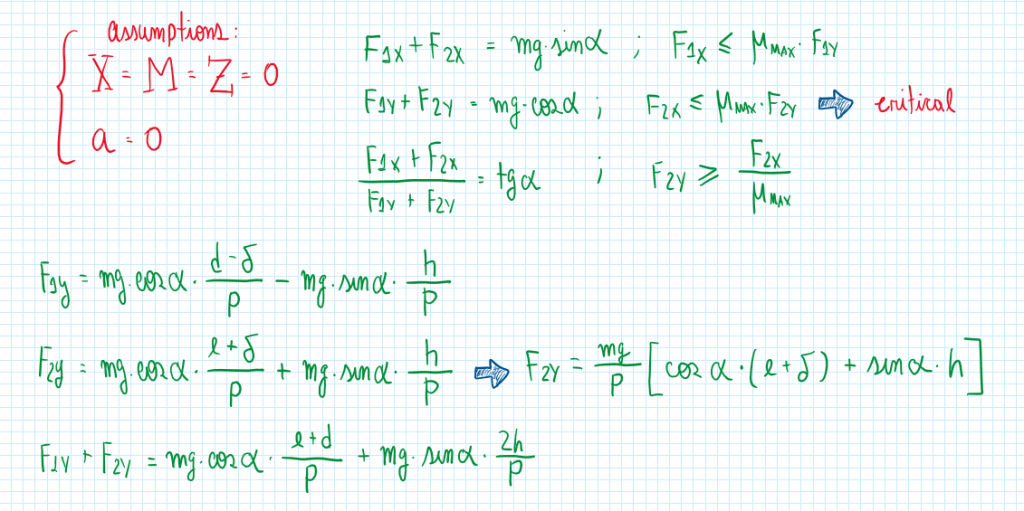 assumptions:
X = M = Z = 0
a = 0
F1X + F2X = mg·sinα ; F1X ≤ μMAX · F1Y
F1Y + F2Y = mg·cosα ; F2X ≤ μMAX · F2Y ⇒ critical
(F1X + F2X) / (F1Y + F2Y) = tgα ; F2Y ≥ F2X / μMAX
F1y = mg·cosα · (d - δ) / p - mg·sinα · h / p
F2y = mg·cosα · (l + δ) / p + mg·sinα · h / p ⇒ F2Y = mg / p [cosα · (l + δ) + sinα · h]
F1Y + F2Y = mg·cosα · (l + d) / p + mg·sinα · 2h / p